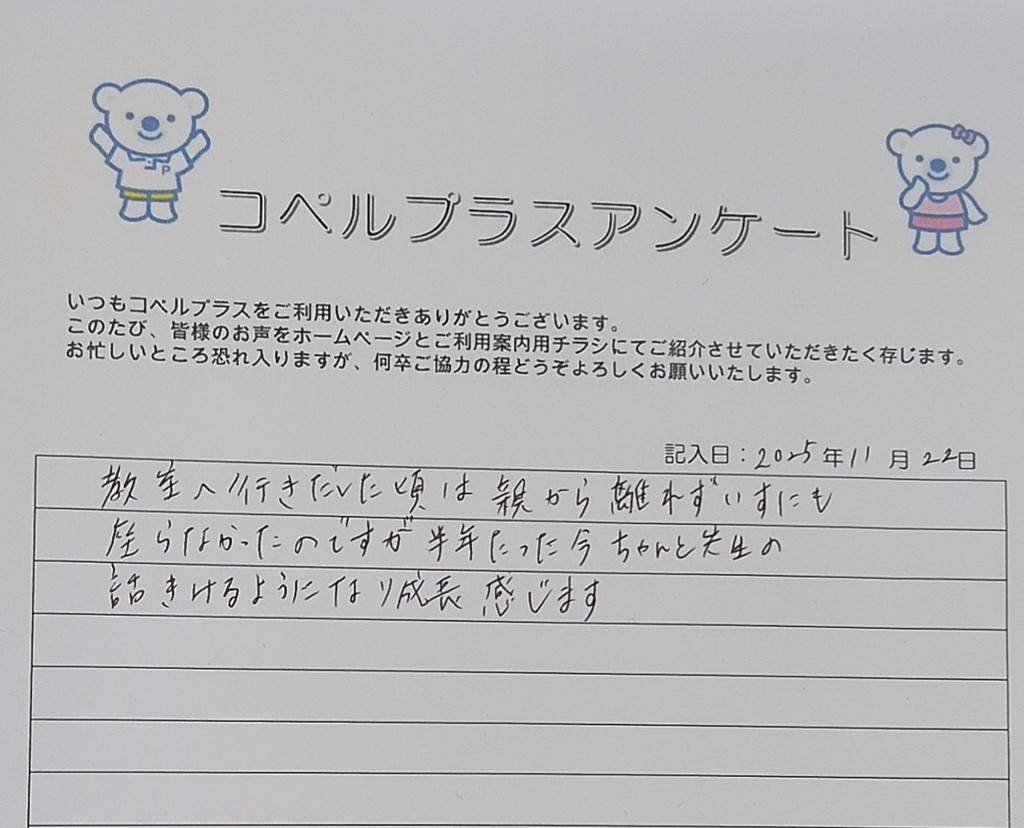 コペルプラスアンケート
いつもコペルプラスをご利用いただきありがとうございます。
このたび、皆様のお声をホームページとご利用案内用チラシにてご紹介させていただきたく存じます。
お忙しいところ恐れ入りますが、何卒ご協力の程どうぞよろしくお願いいたします。
記入日：2025年11月22日
教室へ行きだした頃は親から離れずいすにも
座らなかったのですが半年たった今ちゃんと先生の
話きけるようになり成長感じます